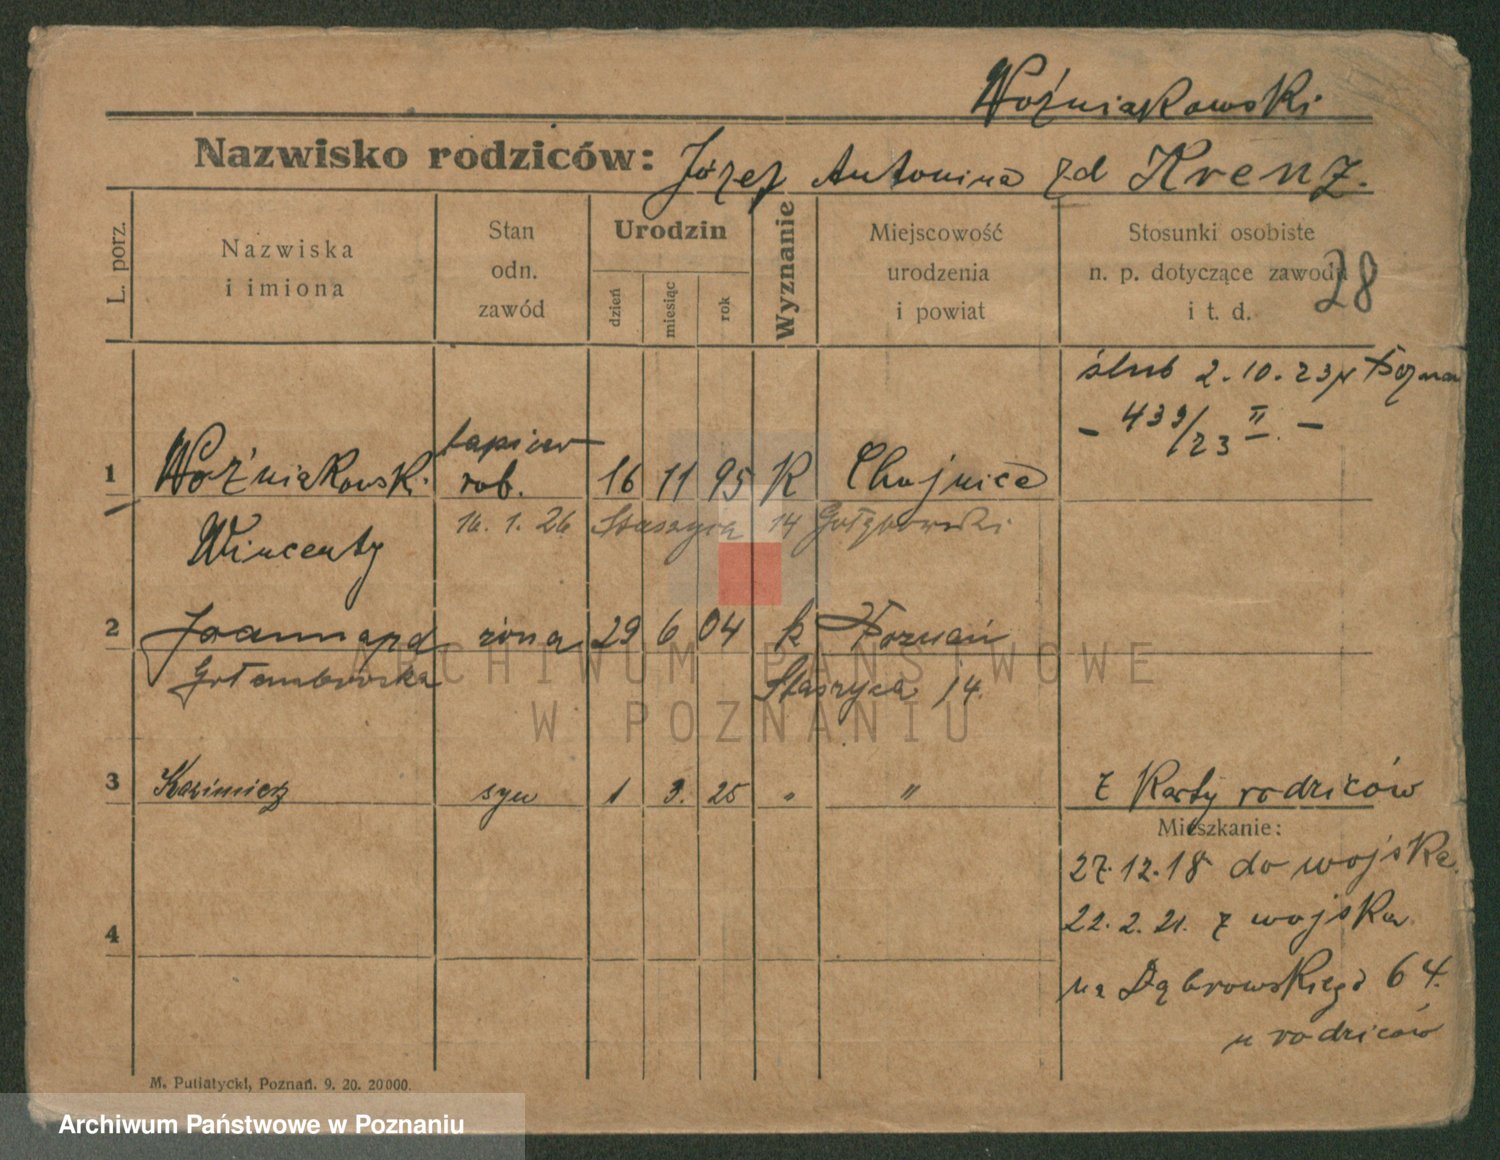 Woźniakowski
Nazwisko rodziców: Józef Antonina zd Krenz.
L. porz.
Nazwiska
i imiona
Stan
odn.
zawód
Urodzin
dzień
miesiąc
rok
Wyznanie
Miejscowość
urodzenia
i powiat
Stosunki osobiste
n. p. dotyczące zawodu
i t. d.
28
ślub 2.10.23
- 439/23 II. -
1 Woźniakowski rob. 16 11 95 K Chojnice
Wincenty
16. 1. 26 Staszyca 14
2 Joanna zd żona 29 6 04 k Poznań
Staszyca 14.
3 Kazimierz syn 1 3. 25 " "
z Karty rodziców
Mieszkanie:
27.12.18 do wojska.
22.2.21. z wojska
na Dąbrowskiego 64.
u rodziców
4
M. Putiatycki, Poznań. 9. 20. 20000.
ARCHIWUM PAŃSTWOWE
W POZNANIU
Archiwum Państwowe w Poznaniu